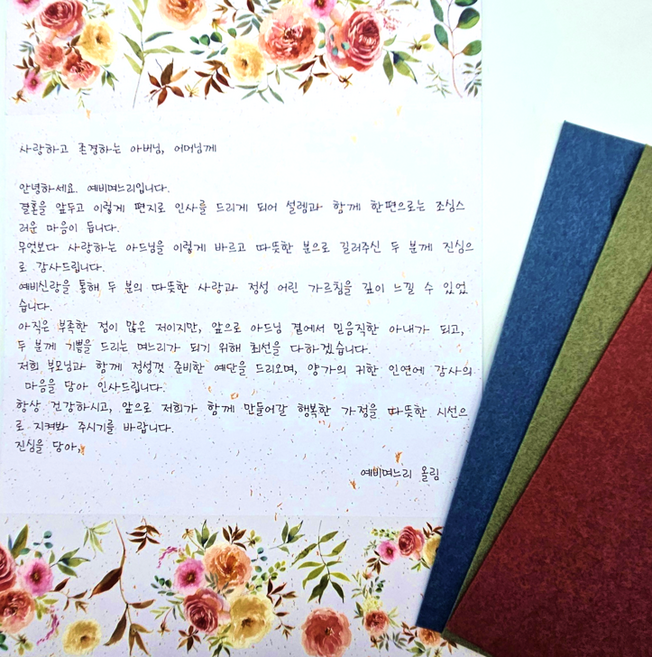 사랑하고 존경하는 아버님, 어머님께
안녕하세요. 예비며느리입니다.
결혼을 앞두고 이렇게 편지로 인사를 드리게 되어 설렘과 함께 한편으로는 조심스
러운 마음이 듭니다.
무엇보다 사랑하는 아드님을 이렇게 바르고 따뜻한 분으로 길러주신 두 분께 진심으
로 감사드립니다.
예비신랑을 통해 두 분의 따뜻한 사랑과 정성 어린 가르침을 깊이 느낄 수 있었
습니다.
아직은 부족한 점이 많은 저이지만, 앞으로 아드님 곁에서 믿음직한 아내가 되고,
두 분께 기쁨을 드리는 며느리가 되기 위해 최선을 다하겠습니다.
저희 부모님과 함께 정성껏 준비한 예단을 드리오며, 양가의 귀한 인연에 감사의
마음을 담아 인사드립니다.
항상 건강하시고, 앞으로 저희가 함께 만들어갈 행복한 가정을 따뜻한 시선으
로 지켜봐 주시기를 바랍니다.
진심을 담아,
예비며느리 올림